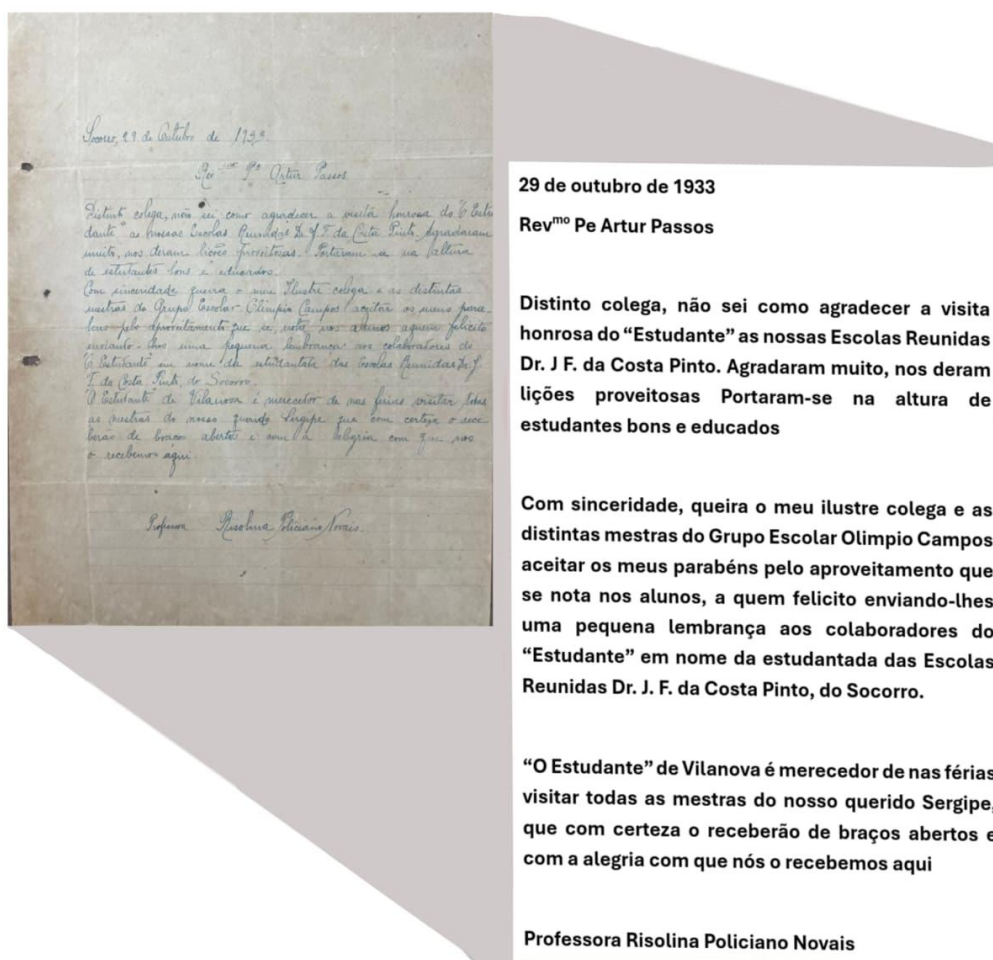 Socorro, 29 de Outubro de 1933.
Revmo Pe Artur Passos
Distinto colega, não sei como agradecer a visita honrosa do "O Estu
dante" as nossas Escolas Reunidas Dr. J F. da Costa Pinto. Agradaram
muito, nos deram lições proveitosas. Portaram-se na altura
de estudantes bons e educados.
Com sinceridade queira o meu Ilustre colega e as distintas
mestras do Grupo Escolar Olimpio Campos aceitar os meus para-
bens pelo aproveitamento que se nota nos alunos aquem felicito
enviando-lhes uma pequena lembrança aos colaboradores do
"O Estudante" em nome da estudantada das Escolas Reunidas Dr. J.
F. da Costa Pinto, do Socorro.
"O Estudante" de Vilanova é merecedor de nas ferias visitar todas
as mestras do nosso querido Sergipe que com certeza o rece
berão de braços abertos e com a alegria com que nos
o recebemos aqui.
Professora Risolina Policiano Novais.
29 de outubro de 1933
Revmo Pe Artur Passos
Distinto colega, não sei como agradecer a visita
honrosa do “Estudante” as nossas Escolas Reunidas
Dr. J F. da Costa Pinto. Agradaram muito, nos deram
lições proveitosas Portaram-se na altura de
estudantes bons e educados
Com sinceridade, queira o meu ilustre colega e as
distintas mestras do Grupo Escolar Olimpio Campos
aceitar os meus parabéns pelo aproveitamento que
se nota nos alunos, a quem felicito enviando-lhes
uma pequena lembrança aos colaboradores do
“Estudante” em nome da estudantada das Escolas
Reunidas Dr. J. F. da Costa Pinto, do Socorro.
“O Estudante” de Vilanova é merecedor de nas férias
visitar todas as mestras do nosso querido Sergipe,
que com certeza o receberão de braços abertos e
com a alegria com que nós o recebemos aqui
Professora Risolina Policiano Novais